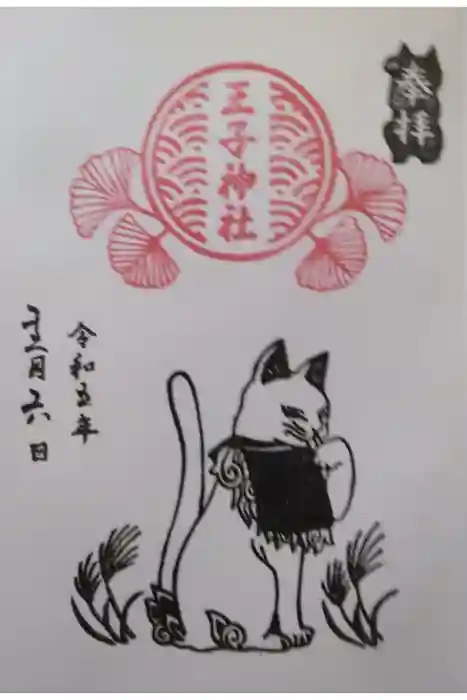 奉拝
王子神社
令和五年
十二月十八日